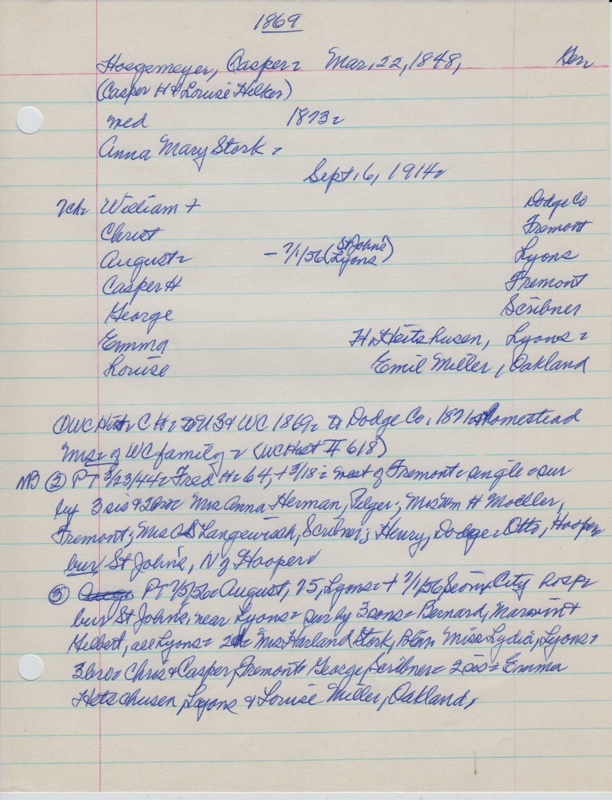 1869
Hoegemeyer, Casper = Mar, 22, 1848, Ger
(Casper H & Louise Hilker)
med 1873 =
Anna Mary Stork =
Sept, 6, 1914 =
7ch = William + Dodge Co
Christ Fremont
August = - 7/1/56 (St Johns Lyons) Lyons
Casper H Fremont
George Scribner
Emma H. Heitshusen, Lyons =
Louise Emil Miller, Oakland
WC 1869 = Dodge Co, 1871 Homestead
of WC family = (WC Hist II 618)
NB ② PT 3/23/44 = Fred H = 64, + 3/18 = west of Fremont = single = sur
by 3 sis & 2bro = Mrs Anna Herman, Pilger; Mrs Wm H Moeller,
Fremont; Mrs Langewisch, Scribner; Henry, Dodge = Otto, Hooper
bur St John's, N Hooper
③ PT August, 75, Lyons = + 7/1/56 Sioux City Hosp =
bur St Johns, near Lyons = sur by 3 sons = Bernard, Marvin &
Hilbert, all Lyons = Mrs Harland Stork, Miss Lydia, Lyons =
3 bro = Chris & Casper, Fremont & George, Scribner = 2 sis = Emma
Hetschusen, Lyons & Louise Miller, Oakland,